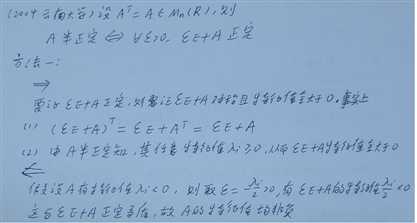 (2004 云南大学) 设 Aᵀ=A∈Mₙ(R), 则
A 半正定 ⇔ ∀ε>0, εE+A 正定
方法一:
⇒
要证 εE+A 正定, 则需证 εE+A 对称且特征值全大于0. 事实上
(1) (εE+A)ᵀ = εE+Aᵀ = εE+A
(2) 由 A 半正定知, 其任意特征值 λᵢ≥0, 从而 εE+A 特征值全大于0
⇐
假定设 A 有特征值 λᵢ<0, 则取 ε= λᵢ/2 >0, 有 εE+A 的特征值 λᵢ/2 <0
这与 εE+A 正定矛盾, 故 A 的特征值均非负